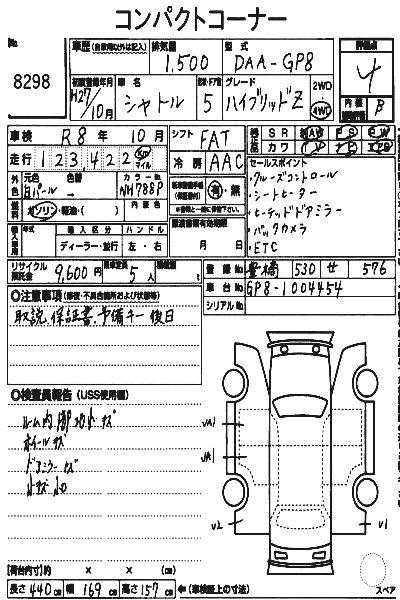 コンパクトコーナー
No. 8298
車歴 (自家用以外は記入) 排気量 1,500 型式 DAA-GP8 評価点 4
初度登録年月 H27/10月 車名 シャトル ドア数 5 グレード ハイブリッドZ 2WD 4WD 内装 B
車検 R8年 10月 シフト FAT SR AW PS PW
走行 123,422 km マイル 冷房 AAC TV カワ エアB
外色 元色 色替 カラーNo. 内装色
目パール NH788P 有・無
燃料 ガソリン・軽油・( )
輸入車 年式 輸入区分 ハンドル
ディーラー・並行 左・右 月 日
セールスポイント
・クルーズコントロール
・シートヒーター
・ヒーテッドドアミラー
・バックカメラ
・ETC
リサイクル預託金 9,600円 乗車定員 5人 積載量
登録No. 豊橋 530 せ 576
車台No. GP8-1004454
シリアルNo.
◎注意事項 (修復・不具合箇所および状態等)
取説、保証書、予備キー後日
◎検査員報告 (USS使用欄)
ルーム内
ホイールキズ
ドアミラーキズ
小キズ
UA1
UA1
U2
U1
【荷台内寸】約 × × (cm)
長さ 440cm 幅 169cm 高さ 157cm ←(車検証上の寸法)
スペア